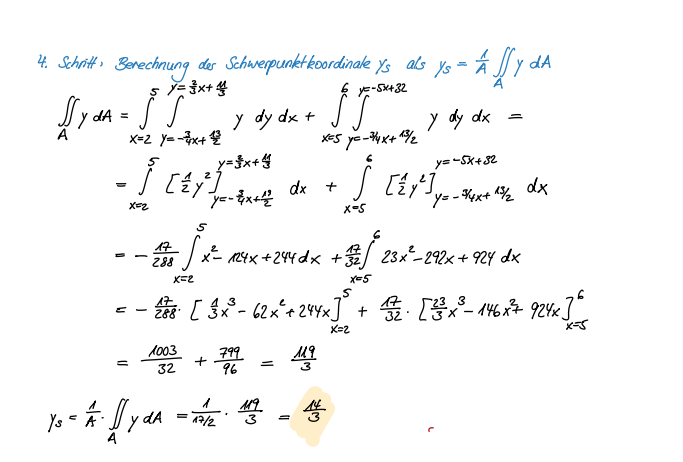 4. Schritt: Berechnung der Schwerpunktkoordinate y_S als y_S = 1/A ∬_A y dA
∬_A y dA = ∫_{x=2}^{5} ∫_{y=-3/4x+13/2}^{y=2/3x+11/3} y dy dx + ∫_{x=5}^{6} ∫_{y=-3/4x+13/2}^{y=-5x+32} y dy dx =
= ∫_{x=2}^{5} [1/2 y²]_{y=-3/4x+13/2}^{y=2/3x+11/3} dx + ∫_{x=5}^{6} [1/2 y²]_{y=-3/4x+13/2}^{y=-5x+32} dx
= - 17/288 ∫_{x=2}^{5} x² - 124x + 244 dx + 17/32 ∫_{x=5}^{6} 23x² - 292x + 924 dx
= - 17/288 · [1/3 x³ - 62x² + 244x]_{x=2}^{5} + 17/32 · [23/3 x³ - 146x² + 924x]_{x=5}^{6}
= 1003/32 + 799/96 = 119/3
y_S = 1/A · ∬_A y dA = 1/(17/2) · 119/3 = 14/3